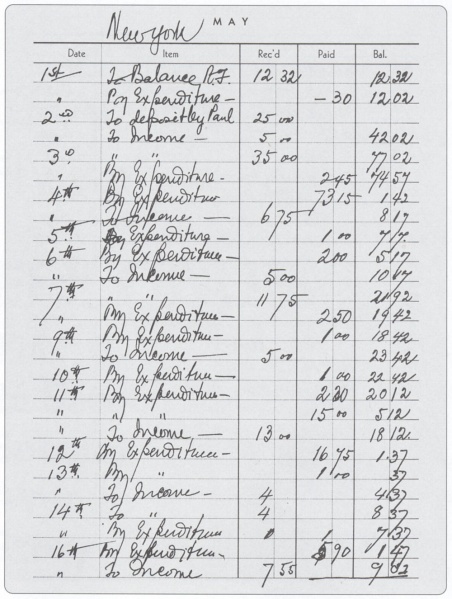 New York MAY
Date Item Rec'd Paid Bal.
1st To Balance 12 32 12.32
" By Expenditure — – 30 12 02
2nd To deposit by Paul 25 00
" To Income — 5 00 42 02
3d " " 35 00 77 02
" By Expenditure - 2 45 74 57
4th By Expenditure 73 15 1.42
" To Income — 6 75 8 17
5th By Expenditure — 1 00 7 17
6th By Expenditure - 2 00 5 17
" To Income — 5 00 10 17
7th " " 11 75 21 92
" By Expenditure - 2 50 19 42
9th By Expenditure - 1 00 18 42
" To Income — 5 00 23 42
10th By Expenditure — 1 00 22 42
11th By Expenditure — 2 30 20 12
" " " 15 00 5 12
" To Income — 13 00 18 12
12th By Expenditure — 16 75 1.37
13th By " 1 00 37
" To Income - 4 4 37
14th To " 4 8 37
" By Expenditure 1 7 37
16th By Expenditure - 5 90 1 47
" To Income 7 55